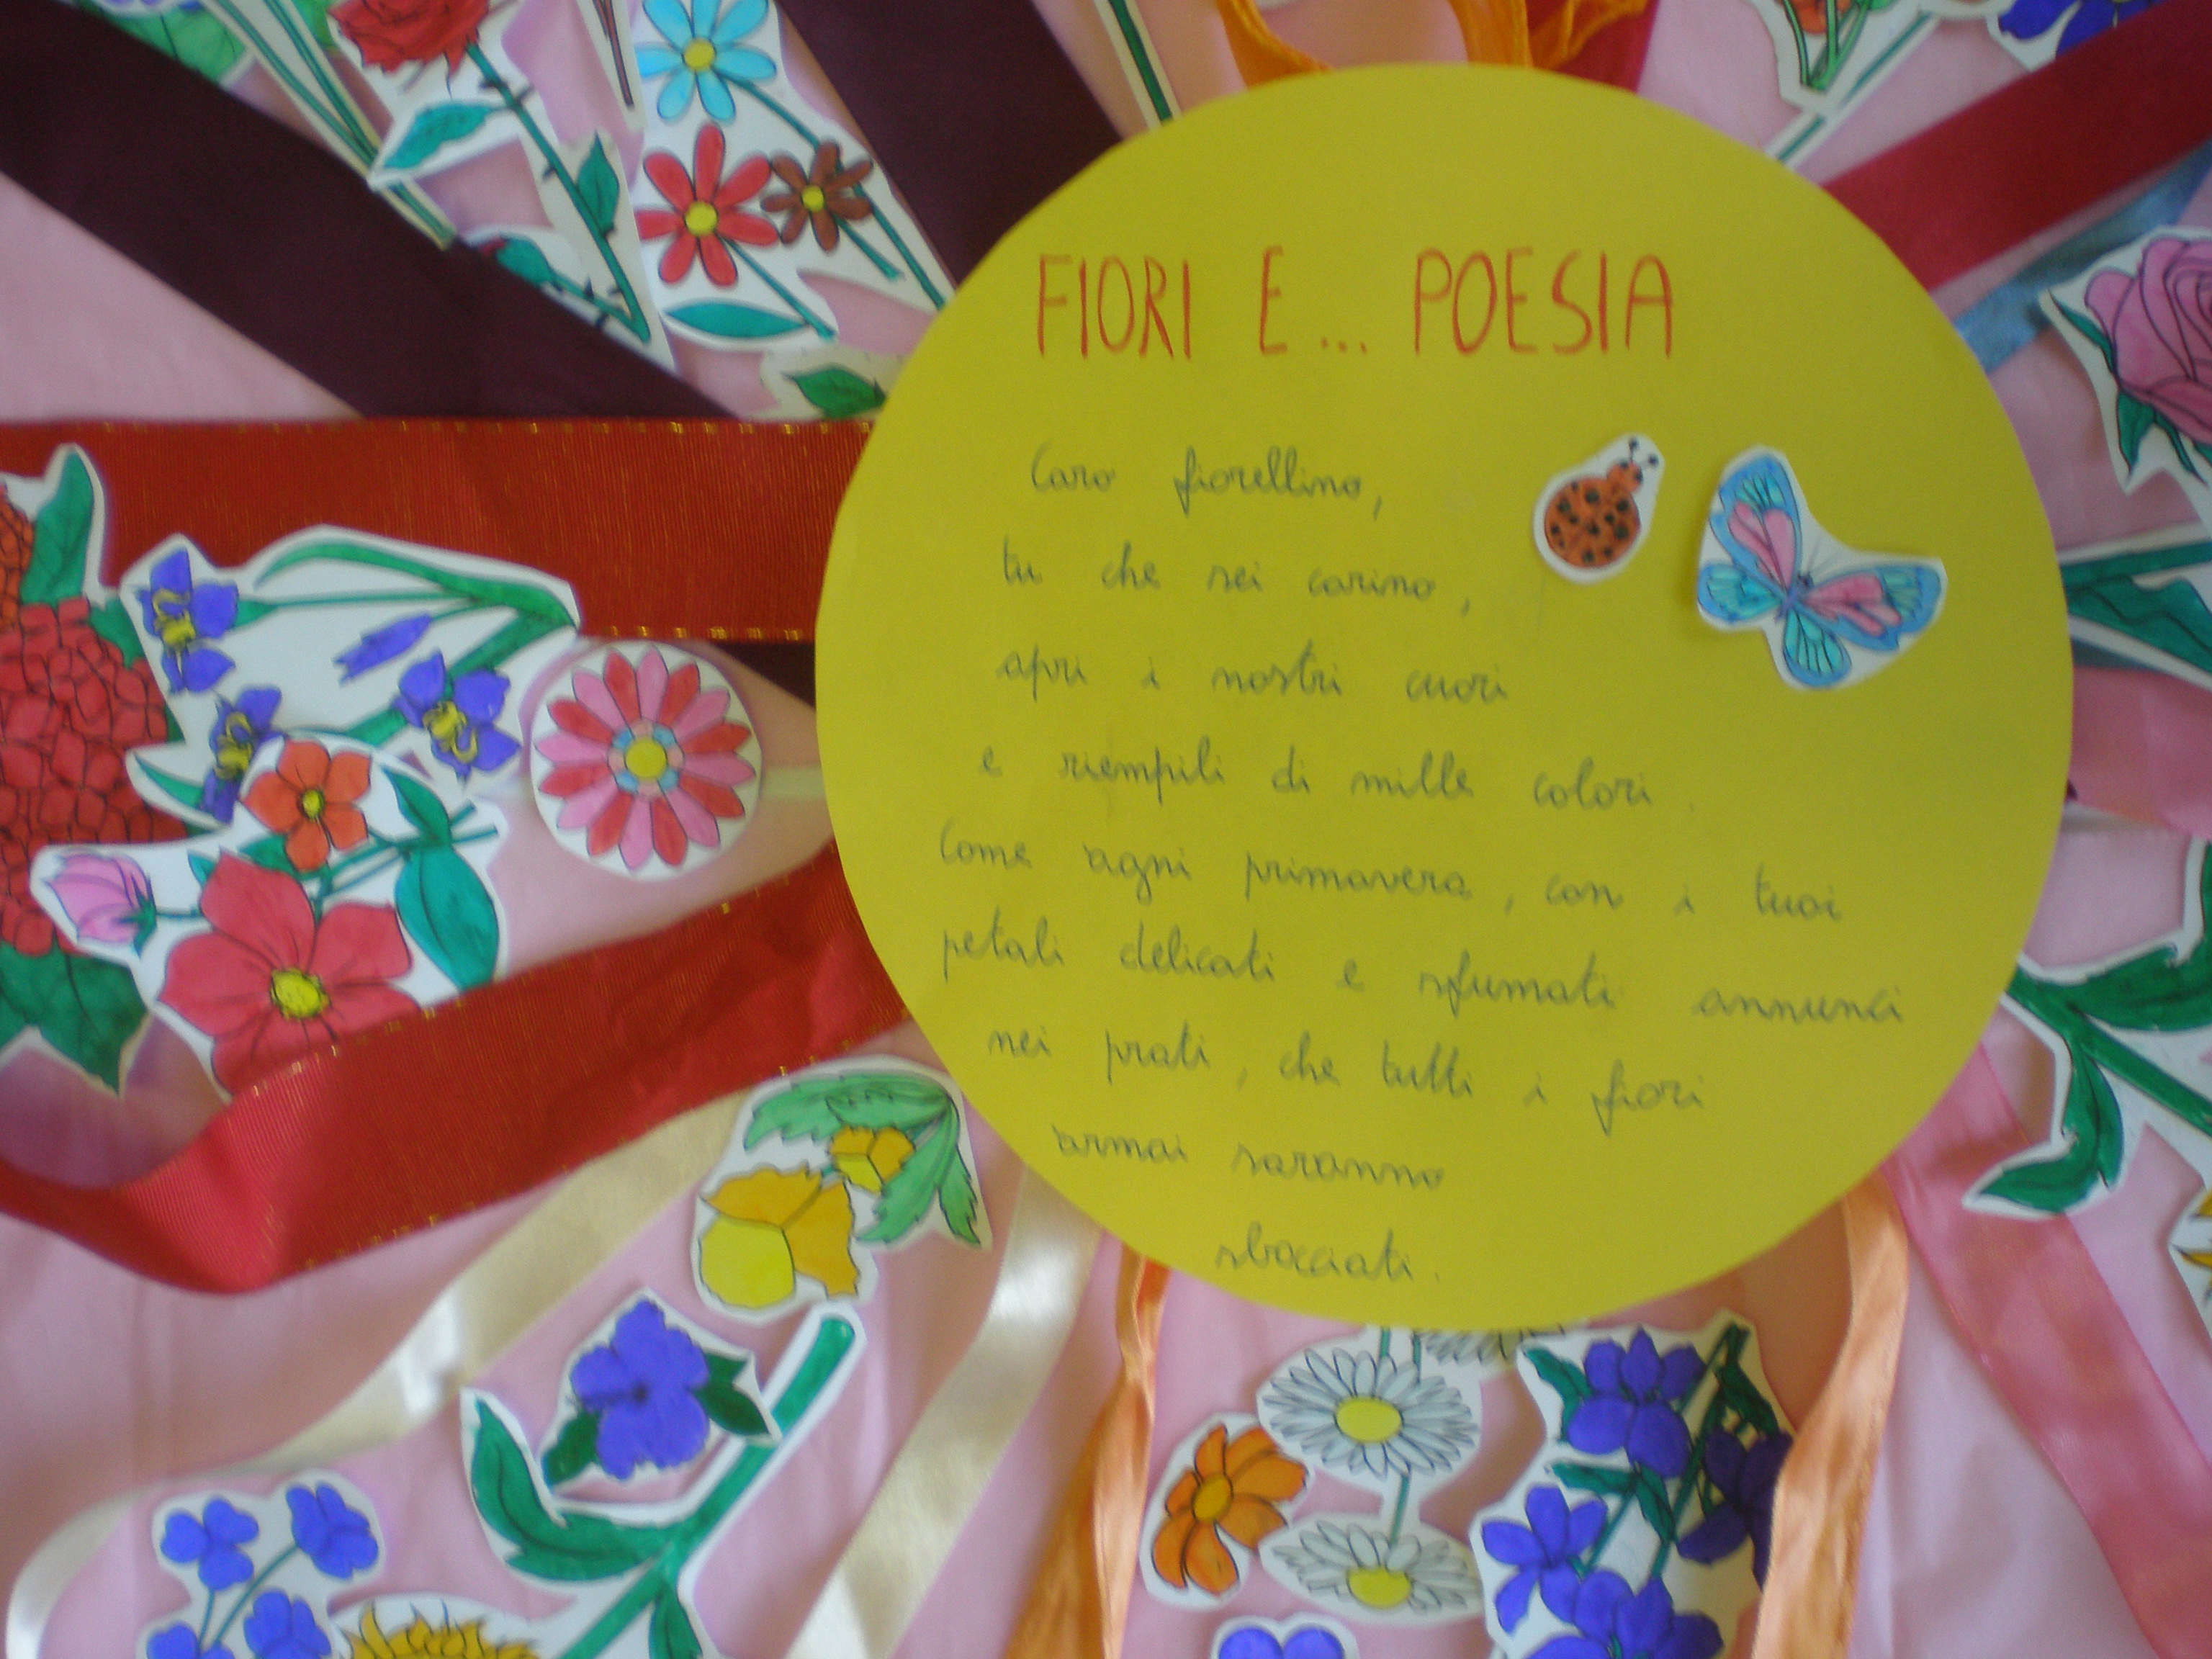 FIORI E... POESIA
Caro fiorellino,
tu che sei carino,
apri i nostri cuori
e riempili di mille colori.
Come ogni primavera, con i tuoi
petali delicati e sfumati annunci
nei prati, che tutti i fiori
ormai saranno
sbocciati.